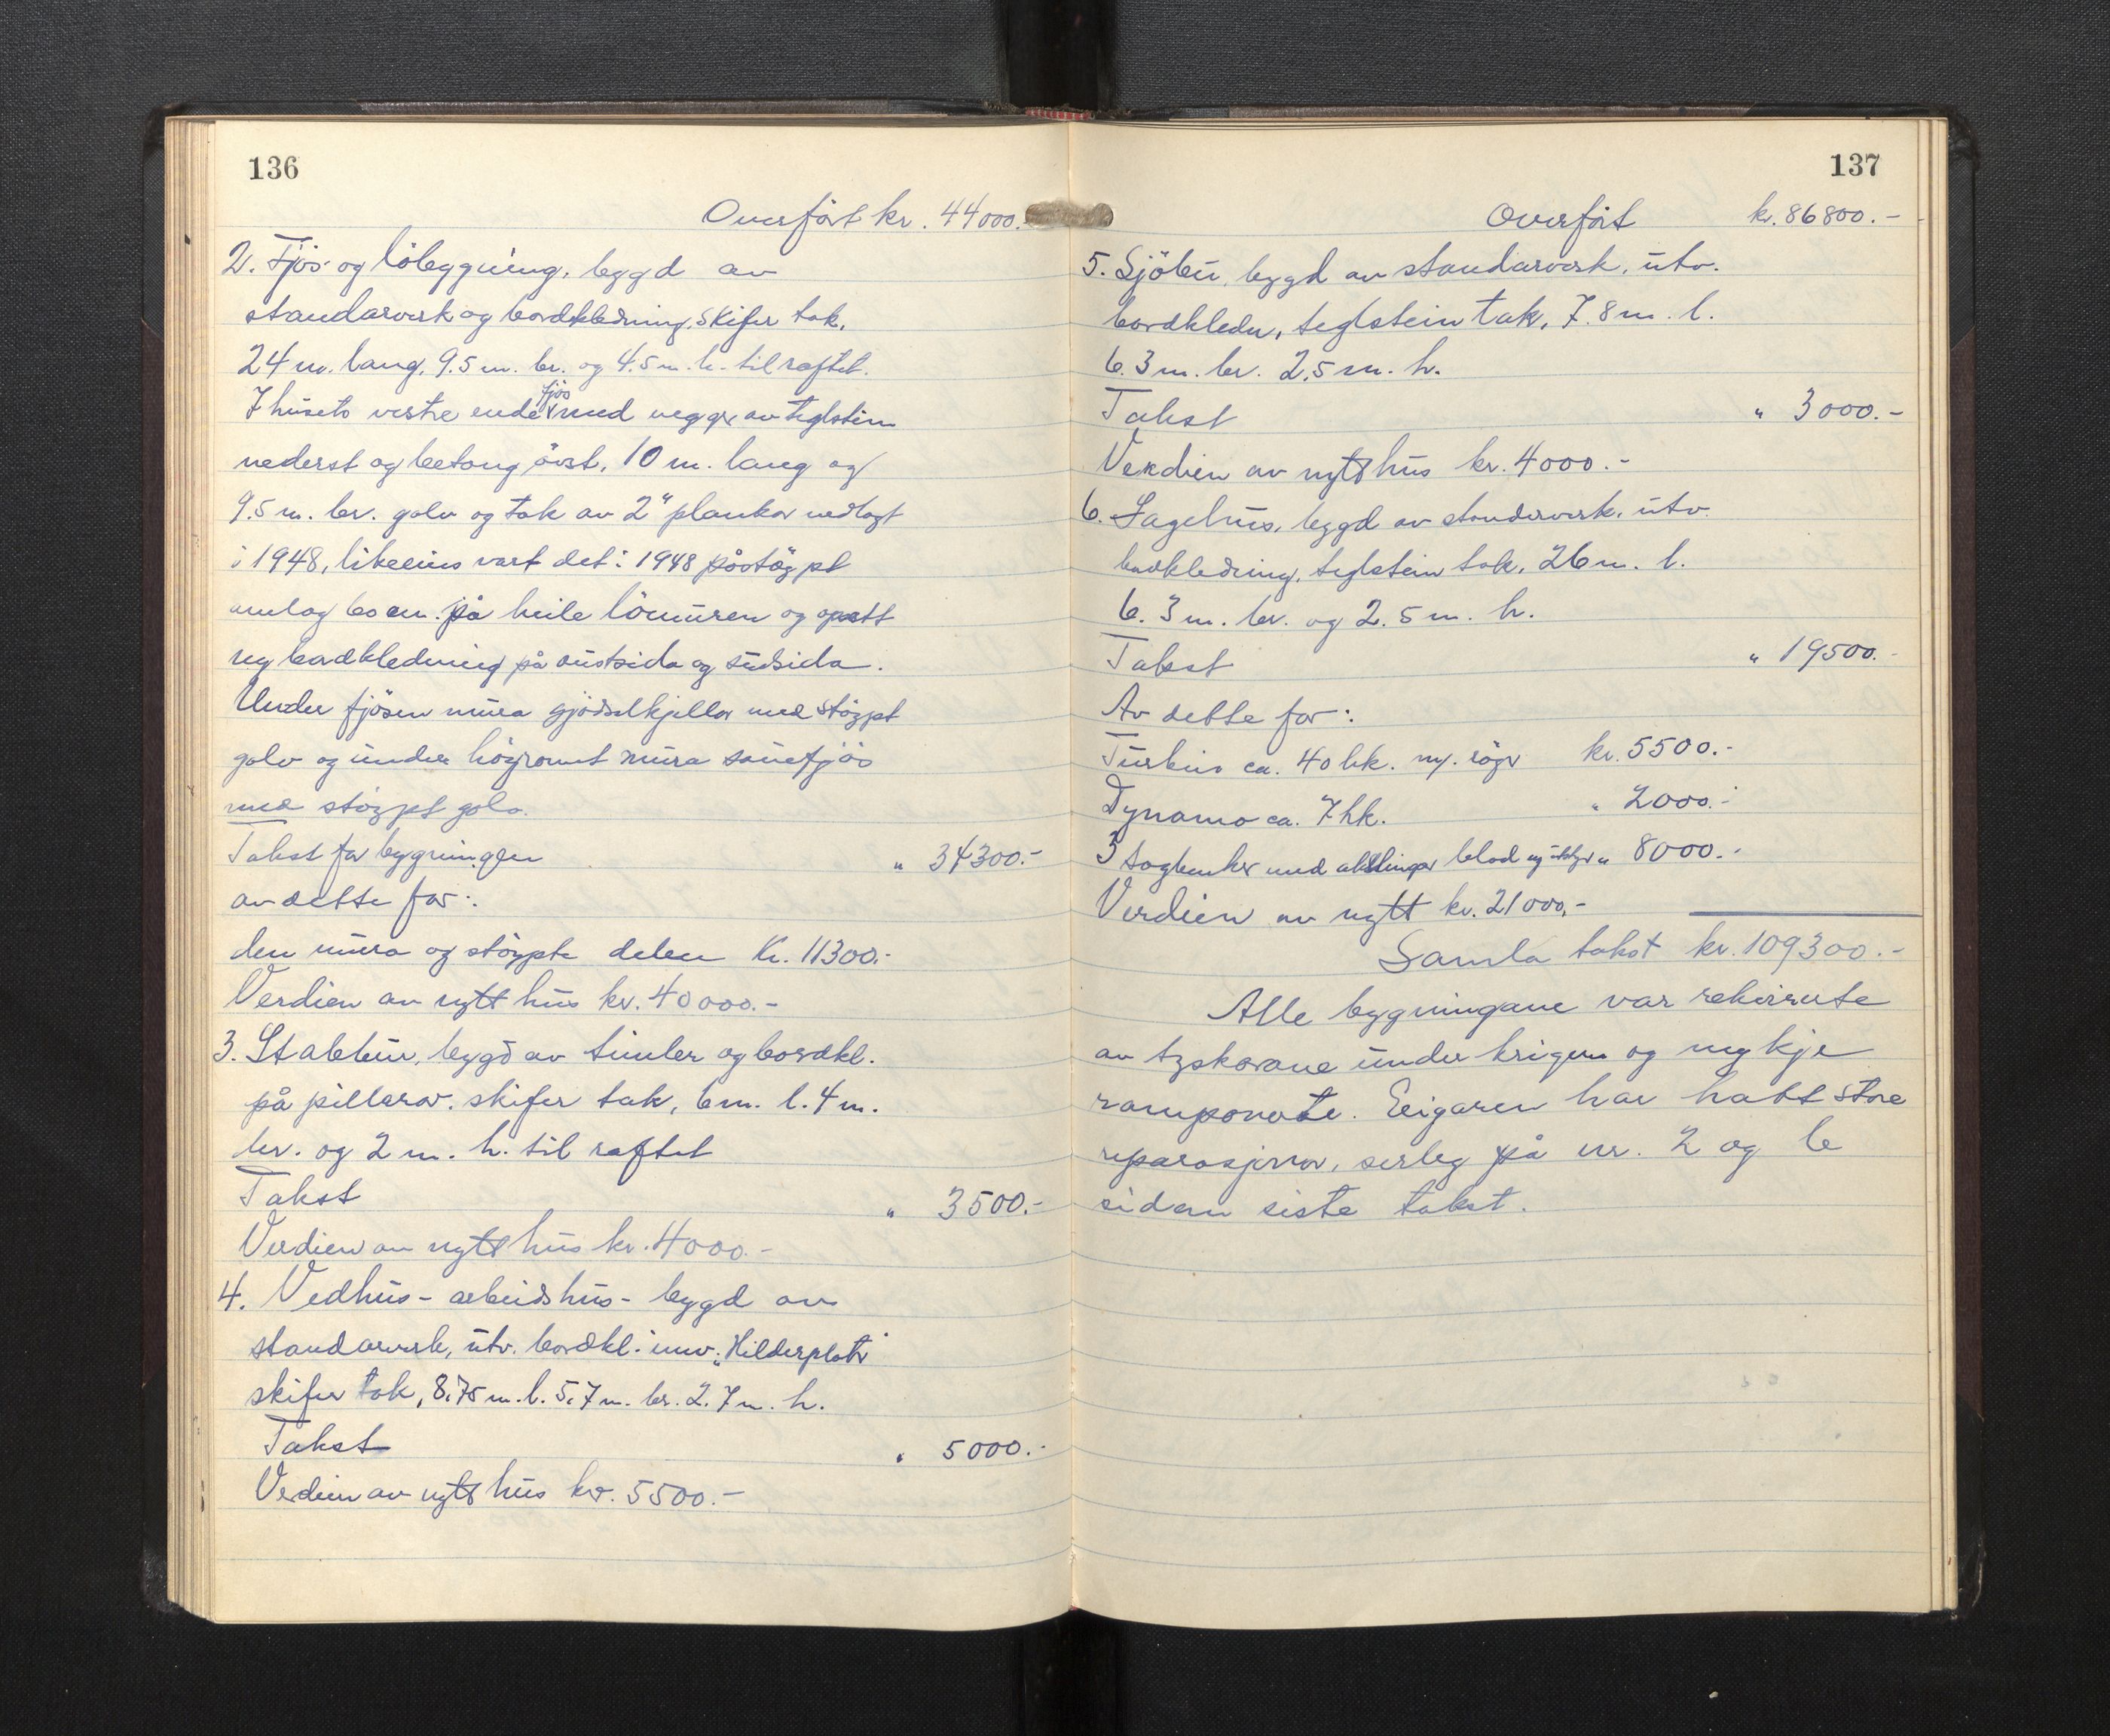 136
Overført kr. 44000.-
2. Fjøs- og løbygning, bygd av
standarverk og bordkledning, skifer tak,
24 m. lang, 9.5 m. br. og 4.5 m. h. til raftet.
I husets vestre ende fjøs med vegger av teglstein
nederst og betong øvst, 10 m. lang og
9.5 m. br. golv og tak av 2" plankar nedlagt
i 1948, likeeins vart det i 1948 påstøypt
umlag 60 cm. på heile lømuren og opsett
ny bordkledning på austsida og sudsida.
Under fjøsen mura gjødselkjellar med støypt
golv og under høyromet mura sauefjøs
med støypt golv.
Takst for bygningen " 34300.-
av dette for:
den mura og støypte delen Kr. 11300.-
Verdien av nytt hus kr. 40000.-
3. Stabbur, bygd av timber og bordkl.
på pillarar. skifer tak, 6 m. l. 4 m.
br. og 2 m. h. til raftet
Takst " 3500.-
Verdien av nytt hus kr. 4000.-
4. Vedhus- arbeidshus- bygd av
standarverk, utv. bordkl. innv. "Hilderplatr"
skifer tak, 8.75 m. l. 5.7 m. br. 2.7 m. h.
Takst " 5000.-
Verdien av nytt hus kr. 5500.-
137
Overført kr. 86800.-
5. Sjøbu, bygd av standarverk, utv.
bordkledn, teglstein tak, 7.8 m. l.
6.3 m. br. 2.5 m. h.
Takst " 3000.-
Verdien av nytt hus kr. 4000.-
6. Sagehus, bygd av standerverk, utv.
bordkledning, teglstein tak, 26 m. l.
6.3 m. br. og 2.5 m. h.
Takst " 19500.-
Av dette for:
Turbin ca. 40 hk. m/. røyr kr. 5500.-
Dynamo ca. 7 hk. " 2000.-
3 sagbenker med akslingar blad og utstyr " 8000.-
Verdien av nytt kr. 21000,-
Samla takst kr. 109300.-
Alle bygningane var rekvirerte
av tyskarane under krigen og mykje
ramponerte. Eigaren har hatt store
reparasjonar, serleg på nr. 2 og 6
sidan siste takst.